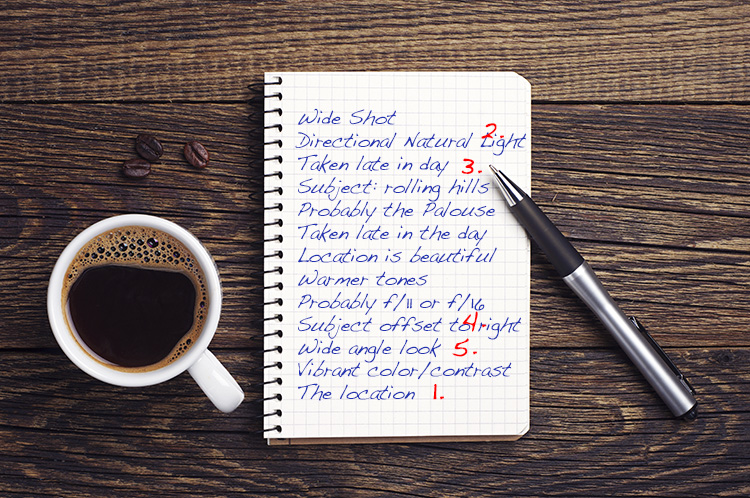 Wide Shot
Directional Natural Light 2.
Taken late in day 3.
Subject: rolling hills
Probably the Palouse
Taken late in the day
Location is beautiful
Warmer tones
Probably f/11 or f/16
Subject offset to right 4.
Wide angle look 5.
Vibrant color/contrast
The location 1.